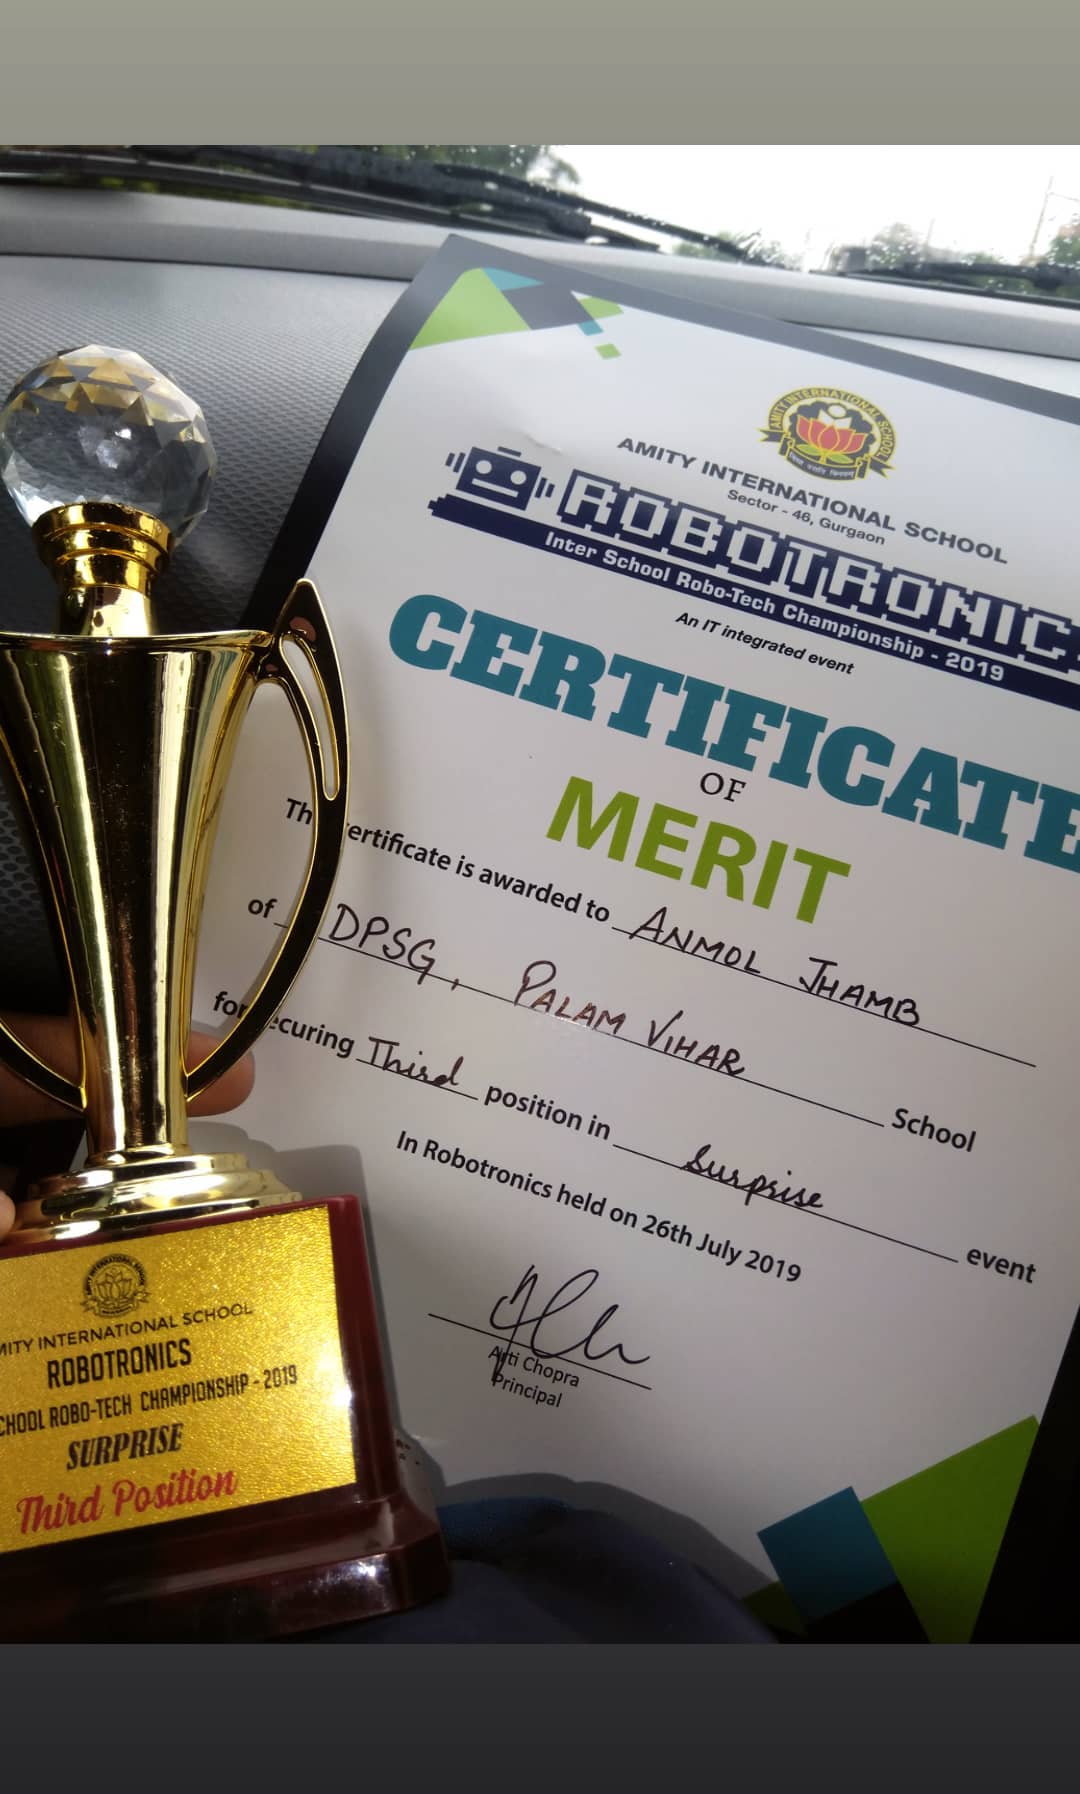 AMITY INTERNATIONAL SCHOOL
विद्या
AMITY INTERNATIONAL SCHOOL
Sector - 46, Gurgaon
ROBOTRONIC
Inter School Robo-Tech Championship - 2019
An IT integrated event
CERTIFICATE
OF
MERIT
Th ertificate is awarded to ANMOL JHAMB
of DPSG, PALAM VIHAR School
for ecuring Third position in Surprise event
In Robotronics held on 26th July 2019
Arti Chopra
Principal
AMITY INTERNATIONAL SCHOOL
MITY INTERNATIONAL SCHOOL
ROBOTRONICS
CHOOL ROBO-TECH CHAMPIONSHIP - 2019
SURPRISE
Third Position